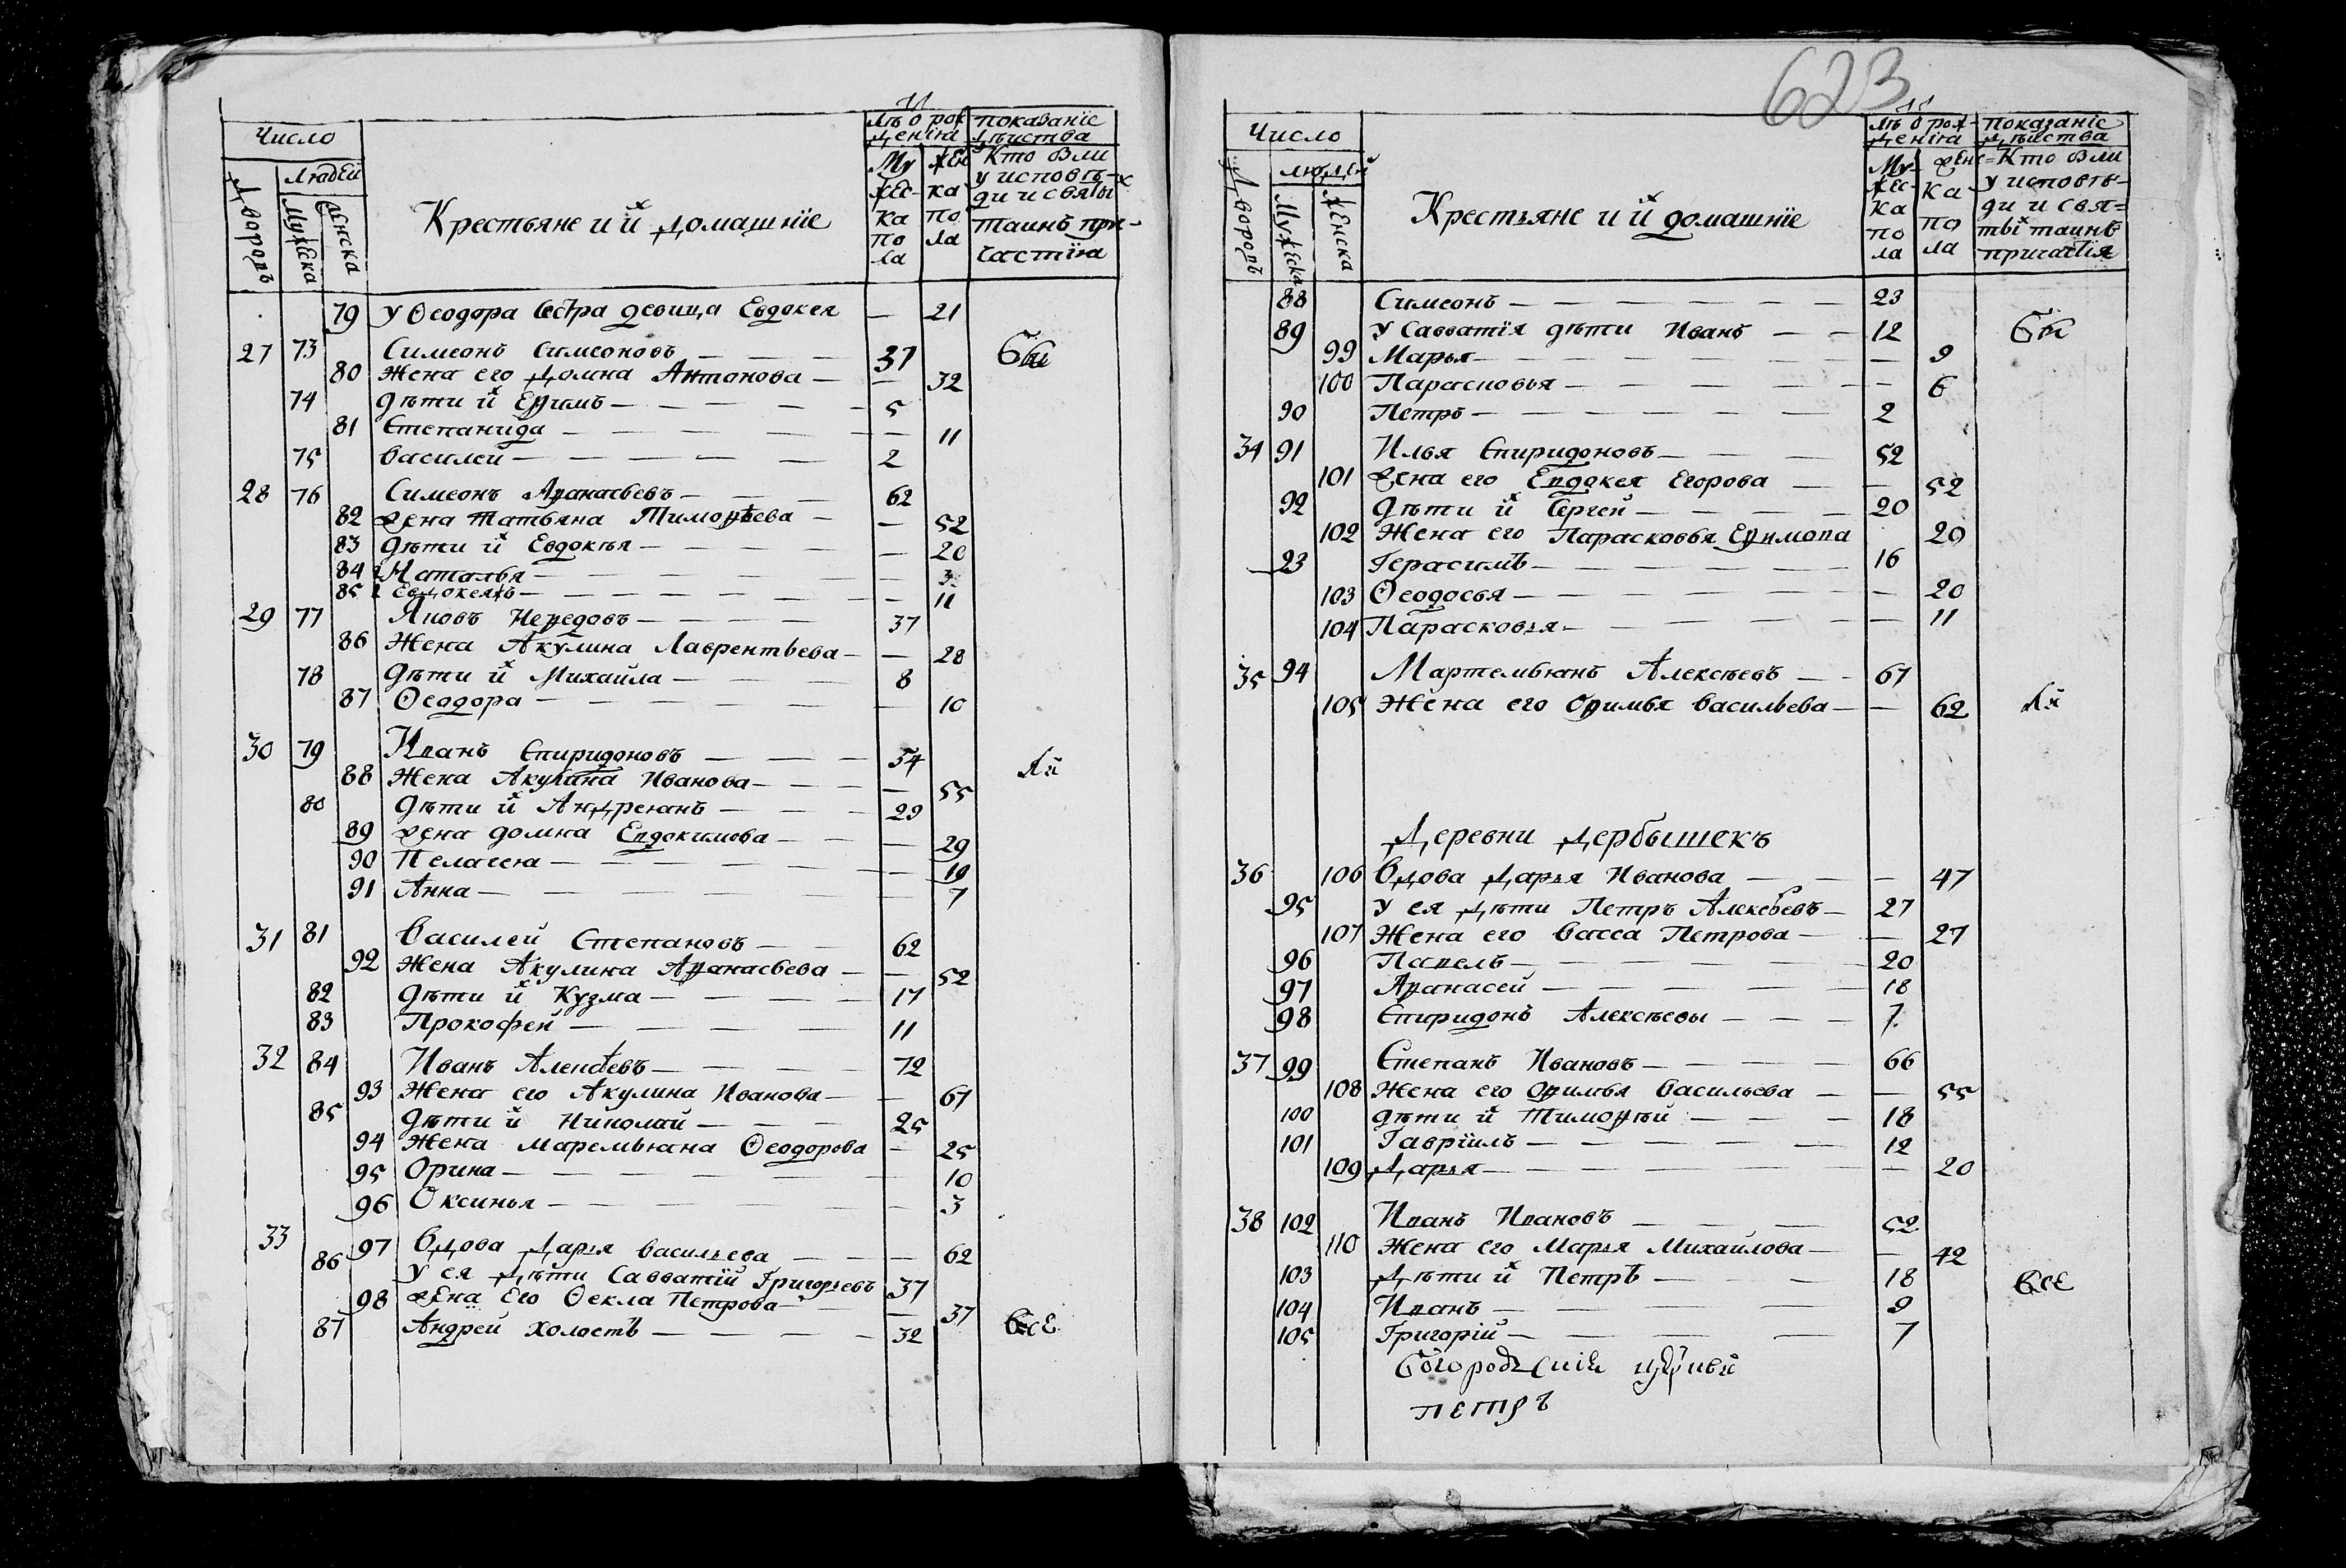 Число
Людей
Дворовъ
Мужеска
женска
Крестьяне и иҳ домашніе
Лѣ ѿ рож
деніга
Му
жес-
ка
по
ла
жен
ка
по
ла
показаніе
дѣиства
Кто были
у исповѣ-
ди и святыҳ
таинъ при-
частіиа
79 у Ѳеодора сестра девица Евдокея — 21
27 73 Симеонъ Симеоновъ — 37 бы
80 жена его Домна Антонова — 32
74 дѣти иҳ Ефимъ — 5
81 Степанида — 11
75 Василей — 2
28 76 Симеонъ Афанасьевъ — 62
82 жена Татьяна Тимофѣева — 52
83 дѣти иҳ Евдокѣя — 20
84 2 Наталья — 3
85 2 Евдокеяжъ — 11
29 77 Яковъ Нефедовъ — 37
86 Жена Акулина Лаврентьева — 28
78 дѣти иҳ Михаила — 8
87 Ѳеодора — 10
30 79 Иванъ Спиридоновъ — 54
88 Жена Акулина Иванова — 55
80 дѣти иҳ Андреянъ — 29
89 жена домна Евдокимова — 29
90 Пелагея — 19
91 Анна — 7
31 81 Василей Степановъ — 62
92 Жена Акулина Афанасьева — 52
82 дѣти иҳ Кузма — 17
83 Прокофей — 11
32 84 Иванъ Алексѣевъ — 72
93 Жена его Акулина Иванова — 67
85 дѣти иҳ Николай — 25
94 Жена Маремьяна Ѳеодорова — 25
95 Орина — 10
96 Оксинья — 3
33 97 Вдова Дарья Васильева — 62
86 У ея дѣти Савватій Григорьевъ 37
98 жена Его Ѳекла Петрова — 37
87 Андрей холостъ — 32 все
623
Число
людей
Дворовъ
Мужеска
женска
Крестьяне и иҳ домашніе
Лѣ ѿ рож-
деніга
Му-
жес-
ка
по
ла
женс=
ка
по
ла
Показаніе
дѣйства
Кто были
у исповѣ-
ди и свя=
тыҳ таинъ
причастія
88 Симеонъ — 23
89 У Савватія дѣти Иванъ — 12 бы
99 Марья — 9
100 Парасковья — 6
90 Петръ — 2
34 91 Илья Спиридоновъ — 52
101 жена его Евдокея Егорова — 52
92 дѣти иҳ Сергей — 20
102 Жена его Парасковья Ефимова 20
93 Герасимъ — 16
103 Ѳеодосья — 20
104 Парасковья — 11
35 94 Мартемьянъ Алексѣевъ — 67
105 Жена его Офимья Васильева — 62
Деревни Дербышекъ
36 106 Вдова Дарья Иванова — 47
95 У ея дѣти Петръ Алексѣевъ — 27
107 Жена его Васса Петрова — 27
96 Павелъ — 20
97 Афанасей — 18
98 Спиридонъ Алексѣевы — 7
37 99 Степанъ Ивановъ — 66
108 Жена его Офимья Васильева — 55
100 дѣти иҳ Тимофѣй — 18
101 Гавріилъ — 12
109 Дарья — 20
38 102 Иванъ Ивановъ — 52
110 Жена его Марья Михаилова — 42
103 Дѣти иҳ Петръ — 18 все
104 Иванъ — 9
105 Григорій — 7
петръ